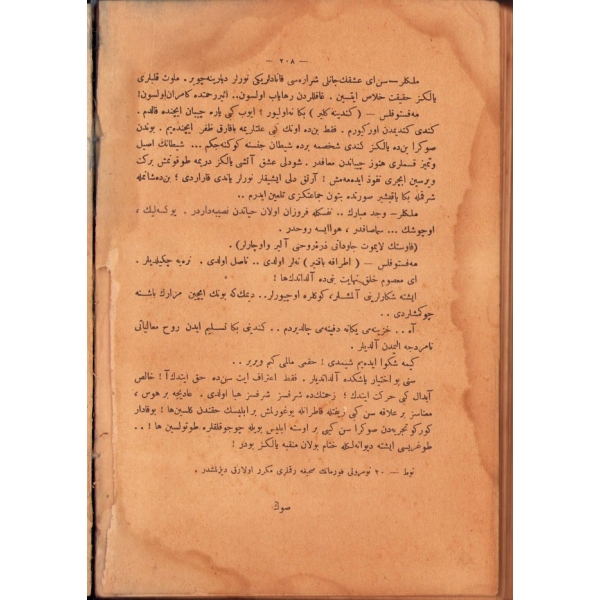 — ٢٠٨ —
ملكلر — سن ای عشقك جانلی شراره سی قنادلریكی نورلر دیارینه چویر . ملوت قلبلری
یالكز حقیقت خلاص ایتسین . غافلردن رهایاب اولسون .. اثیر رحمتده كامران اولسون !
مه فستوفلس — ( كندینه كلیر ) بكا نه اولیور ؟ ایوب كبی یاره چیبان ایچنده قالدم .
كندی كندیمدن اوركیورم . فقط بن ده اونك كبی عللریمه باقارق ظفر ایچنده یم . بوندن
صوكرا بن ده یالكز كندی شخصمه برده شیطان جنسنه كوكنه جكم ... شیطانك اصیل
وتمیز قسملری هنوز چیباندن معافدر . شو دلی عشق آتشی یالكز دریمه طوقونمش برك
ویرسین ایچری نفوذ ایده مه مش ! آرتق دلی ایشیقلر نورلر یاندی قاراردی ؛ بن ده شانمله
شرفمله بكا یاقیشیر صورتده بتون جماعتكزی تلعین ایدرم ..
ملكلر — وجد مبارك .. نفسكله فروزان اولان حیاتدن نصیبه داردر . یوكسه لیك ،
اوچوشك ... سماصافدر ، هواایسه روحدر .
( فاوستك لایموت جاودانی ذره روحنی آلیر واوچارلر ) .
مه فستوفلس — ( اطرافه باقنیر ) نه لر اولدی .. ناصل اولدی . نره یه چكیلدیلر .
ای معصوم خلق نهایت بنی ده آلداتدك ها !
ایشته شكارلرینی آلمشلر ، كوكلره اوچیورلر .. دیمك كه بونك ایچین مزارك باشنه
چوكشلردی ..
آه .. خزینه می یكانه دفینه می چالدیردم .. كندینی بكا تسلیم ایدن روح معالیاتی
نامردجه المدن آلدیلر .
كیمه شكوا ایده یم شیمدی ! حقمی مالمی كم ویریر ..
سنی بو اختیار یاشكده آلداتدیلر . فقط اعتراف ایت سن ده حق ایتدك آ ! خالص
آبدال كبی حركت ایتدك ؛ زحمتك ده شرفسز شرفسز هبا اولدی . عادیجه بر هوس ،
معناسز بر علاقه سن كبی زفتله قاطرانله یوغورلمش بر ابلیسك حقندن كلسین ها ! بوقدار
كورگو تجربه دن صوكرا سن كبی بر اوسته ابلیس بویله چوجوقلقلره طوتولسین ها ! ..
طوغریسی ایشته دیوانه لكله ختام بولان منقبه یالكز بودر !
نوط — ٢٠ نومرولی فورمانك صحیفه رقملری مكرر اولارق دیزلمشدر .
صوك